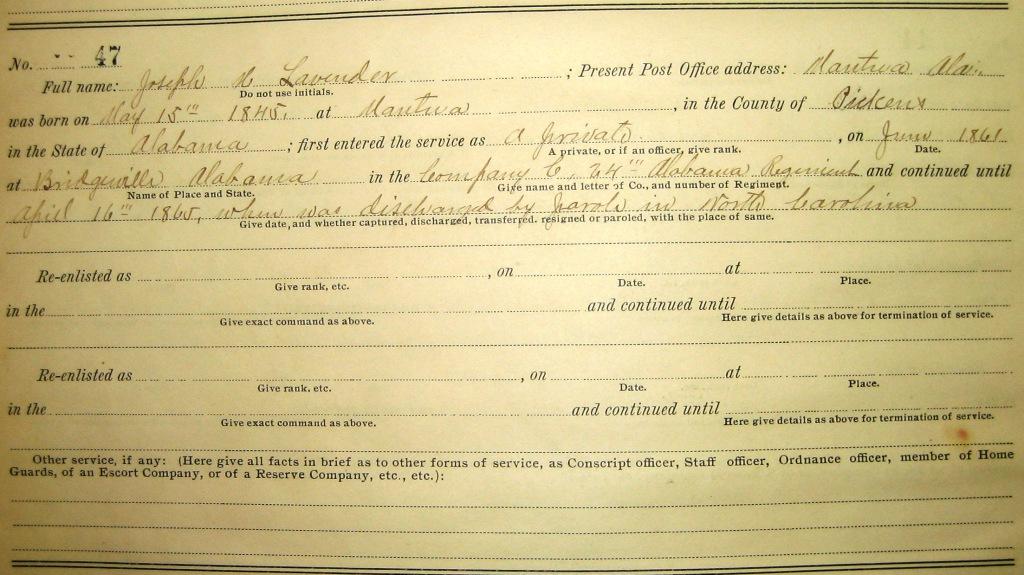 No. -- 47
Full name: Joseph H Lavender ; Present Post Office address: Mantua Ala.
Do not use initials.
was born on May 15th 1845. at Mantua , in the County of Pickens
in the State of Alabama ; first entered the service as A private , on June 1861
A private, or if an officer, give rank. Date.
at Bridgeville Alabama in the Company C, 24th Alabama Regiment and continued until
Name of Place and State. Give name and letter of Co., and number of Regiment.
April 16th 1865, when was discharged by parole in North Carolina
Give date, and whether captured, discharged, transferred, resigned or paroled, with the place of same.
Re-enlisted as , on at
Give rank, etc. Date. Place.
in the and continued until
Give exact command as above. Here give details as above for termination of service.
Re-enlisted as , on at
Give rank, etc. Date. Place.
in the and continued until
Give exact command as above. Here give details as above for termination of service.
Other service, if any: (Here give all facts in brief as to other forms of service, as Conscript officer, Staff officer, Ordnance officer, member of Home
Guards, of an Escort Company, or of a Reserve Company, etc., etc.):